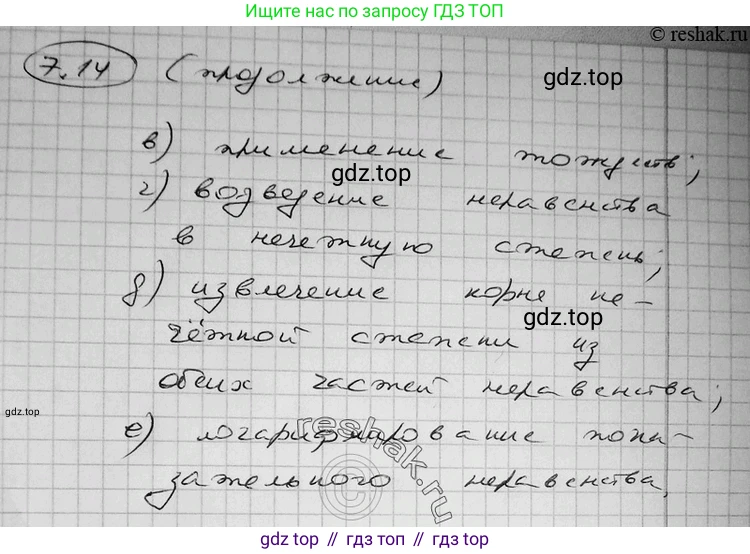 Наши книги по запросу ГДЗ ТОП
© reshak.ru
7.14 (продолжение)
gdz.top
в) применение тождеств;
gdz.top
г) возведение неравенства
в нечетную степень;
д) извлечение корне не-
gdz.top
чётной степени из
обеих частей неравенства;
gdz.top
е) логарифмирование пока-
reshak.ru
зательного неравенства,
gdz top // гдз топ // gdz.top